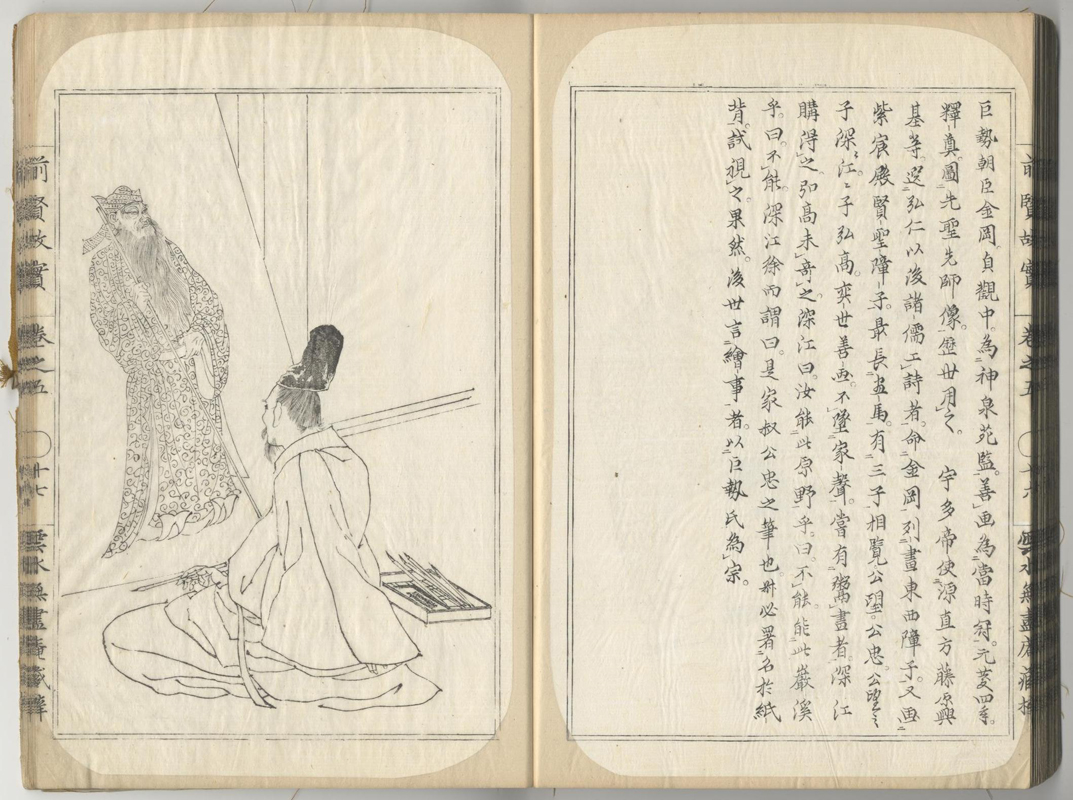 巨勢朝臣金岡。貞觀中。為神泉苑監。善画為當時冠。元慶四年。
釋奠。圖先聖先師像。歴世用之。　宇多帝使源直方藤原興
基等。選弘仁以後諸儒工詩者。命金岡列畫東西障子。又画
紫宸殿賢聖障子。最長画馬。有三子相覽公望。公忠。公望之
子深江。深江子弘高。奕世善画。不墜家聲。嘗有鬻畫者。深江
購得之。弘高未奇之。深江曰。汝能此原野乎。曰。不能。能此巖溪
乎。曰。不能。深江徐而謂曰。是家叔公忠之筆也。必署名於紙
背。試視之果然。後世言繪事者。以巨勢氏為宗。
前賢故實
卷之五
十六
雲水無盡庵藏
前賢故實
卷之五
十七
雲水無盡庵藏